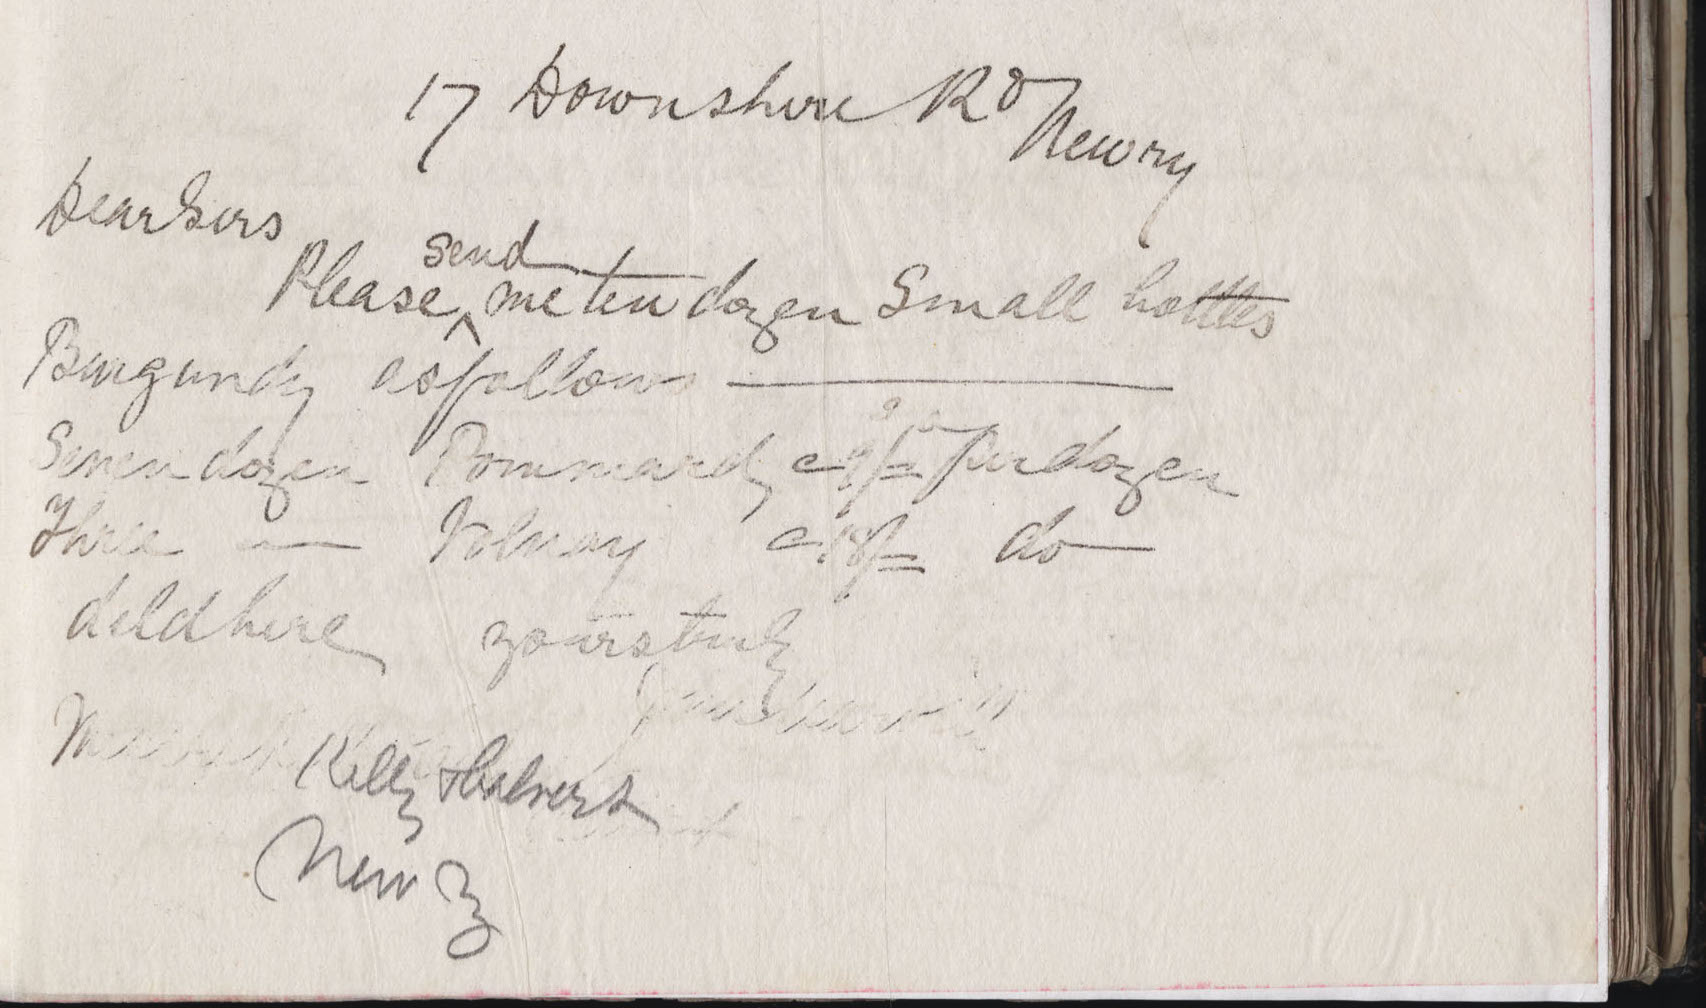 17 Downshire Rd
Newry
Dear Sirs
send
Please ^ me ten dozen Small bottles
Burgundy as follows
Seven dozen Pommard per dozen
Three — Volnay @ 18/= do
deld here yours truly
Kelly & Calvert
Newry